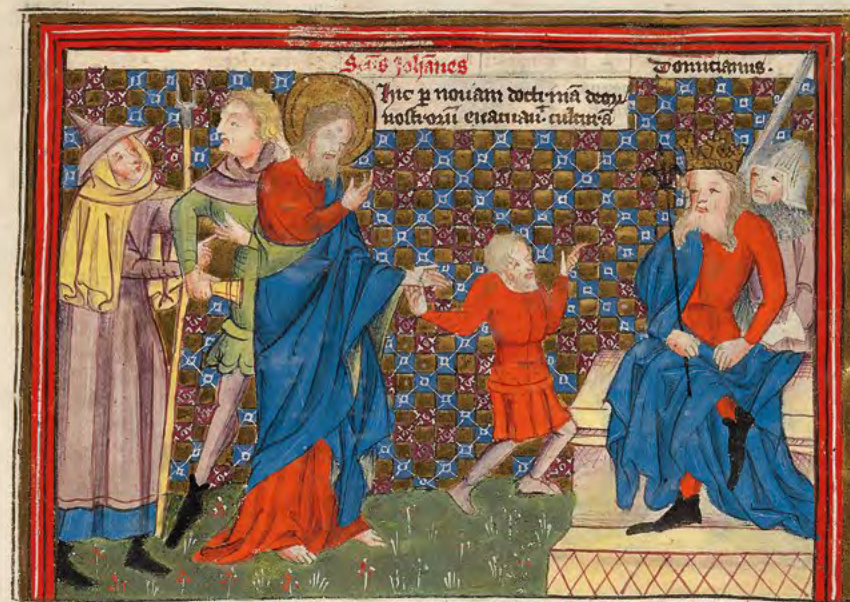 Scs Johanes
Domicianus.
Hic p nouam doctrinā deoꝝ
nostroꝝ euacuaū cultura